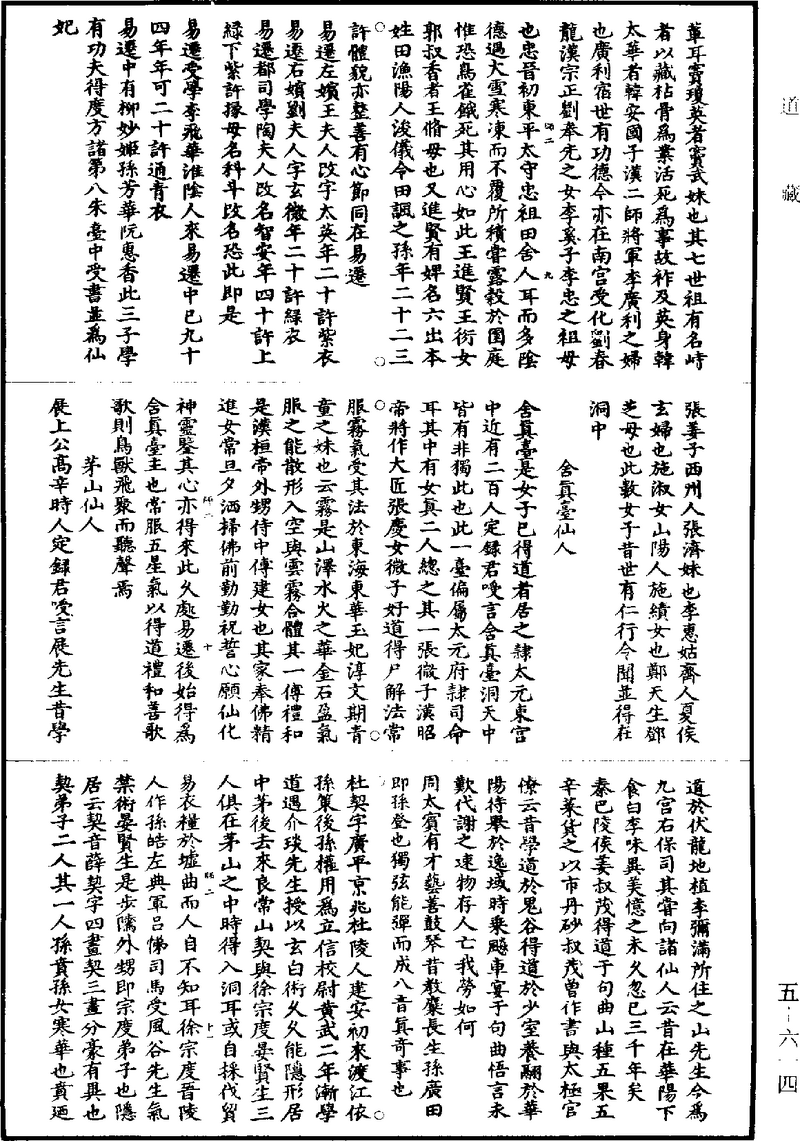 道藏
葷耳竇瓊英者竇武妹也其七世祖有名峙
者以藏枯骨為業活死為事故祚及英身韓
太華者韓安國子漢二師將軍李廣利之婦
也廣利宿世有功德今亦在南宮受化劉春
龍漢宗正劉奉先之女李奚子李忠之祖母
也忠晉初東平太守忠祖田舍人耳而多陰
德遇大雪寒凍而不覆所積嘗露穀於園庭
惟恐鳥雀餓死其用心如此王進賢王衍女
郭叔香者王脩母也又進賢有婢名六出本
姓田漁陽人浚儀令田諷之孫年二十二三
許體貌亦整善有心節同在易遷
易遷左嬪王夫人改字太英年二十許紫衣
易遷右嬪劉夫人字玄微年二十許綠衣
易遷都司學陶夫人改名智安年四十許上
綠下紫許掾母名科斗改名恐此即是
易遷受學李飛華淮陰人來易遷中已九十
四年年可二十許通青衣
易遷中有柳妙姬孫芳華阮惠香此三子學
有功夫得度方諸第八朱臺中受書並為仙
妃
張姜子西州人張濟妹也李惠姑齊人夏侯
玄婦也施淑女山陽人施績女也鄭天生鄧
芝母也此數女子昔世有仁行令聞並得在
洞中
含真臺仙人
含真臺是女子已得道者居之隸太元東宮
中近有二百人定錄君受言含真臺洞天中
皆有非獨此也此一臺偏屬太元府隸司命
耳其中有女真二人總之其一張微子漢昭
帝將作大匠張慶女微子好道得尸解法常
服霧氣受其法於東海東華玉妃淳文期青
童之妹也云霧是山澤水火之華金石盈氣
服之能散形入空與雲霧合體其一傅禮和
是漢桓帝外甥侍中傅建女也其家奉佛精
進女常旦夕洒掃佛前勤勤祝誓心願仙化
神靈鑒其心亦得來此久處易遷後始得為
含真臺主也常服五星氣以得道禮和善歌
歌則鳥獸飛聚而聽聲焉
茅山仙人
展上公高辛時人定錄君受言展先生昔學
道於伏龍地植李彌滿所住之山先生今為
九宮右保司其嘗向諸仙人云昔在華陽下
食白李味異美憶之未久忽已三千年矣
秦巴陵侯姜叔茂得道于句曲山種五果五
辛菜貨之以市丹砂叔茂曾作書與太極官
僚云昔學道於鬼谷得道於少室養翮於華
陽待舉於逸域時乘飈車宴于句曲悟言永
歎代謝之速物存人亡我勞如何
周太賓有才藝善鼓琴昔教糜長生孫廣田
即孫登也獨弦能彈而成八音真奇事也
杜契字廣平京兆杜陵人建安初來渡江依
孫策後孫權用為立信校尉黃武二年漸學
道遇介琰先生授以玄白術久久能隱形居
中茅後去來良常山契與徐宗度晏賢生三
人俱在茅山之中時得入洞耳或自採伐貿
易衣糧於墟曲而人自不知耳徐宗度晉陵
人作孫皓左典軍呂悌司馬受風谷先生氣
禁術晏賢生是步隲外甥即宗度弟子也隱
居云契音薛契字四畫契三畫分豪有異也
契弟子二人其一人孫賁孫女寒華也賁迺
五-六一四